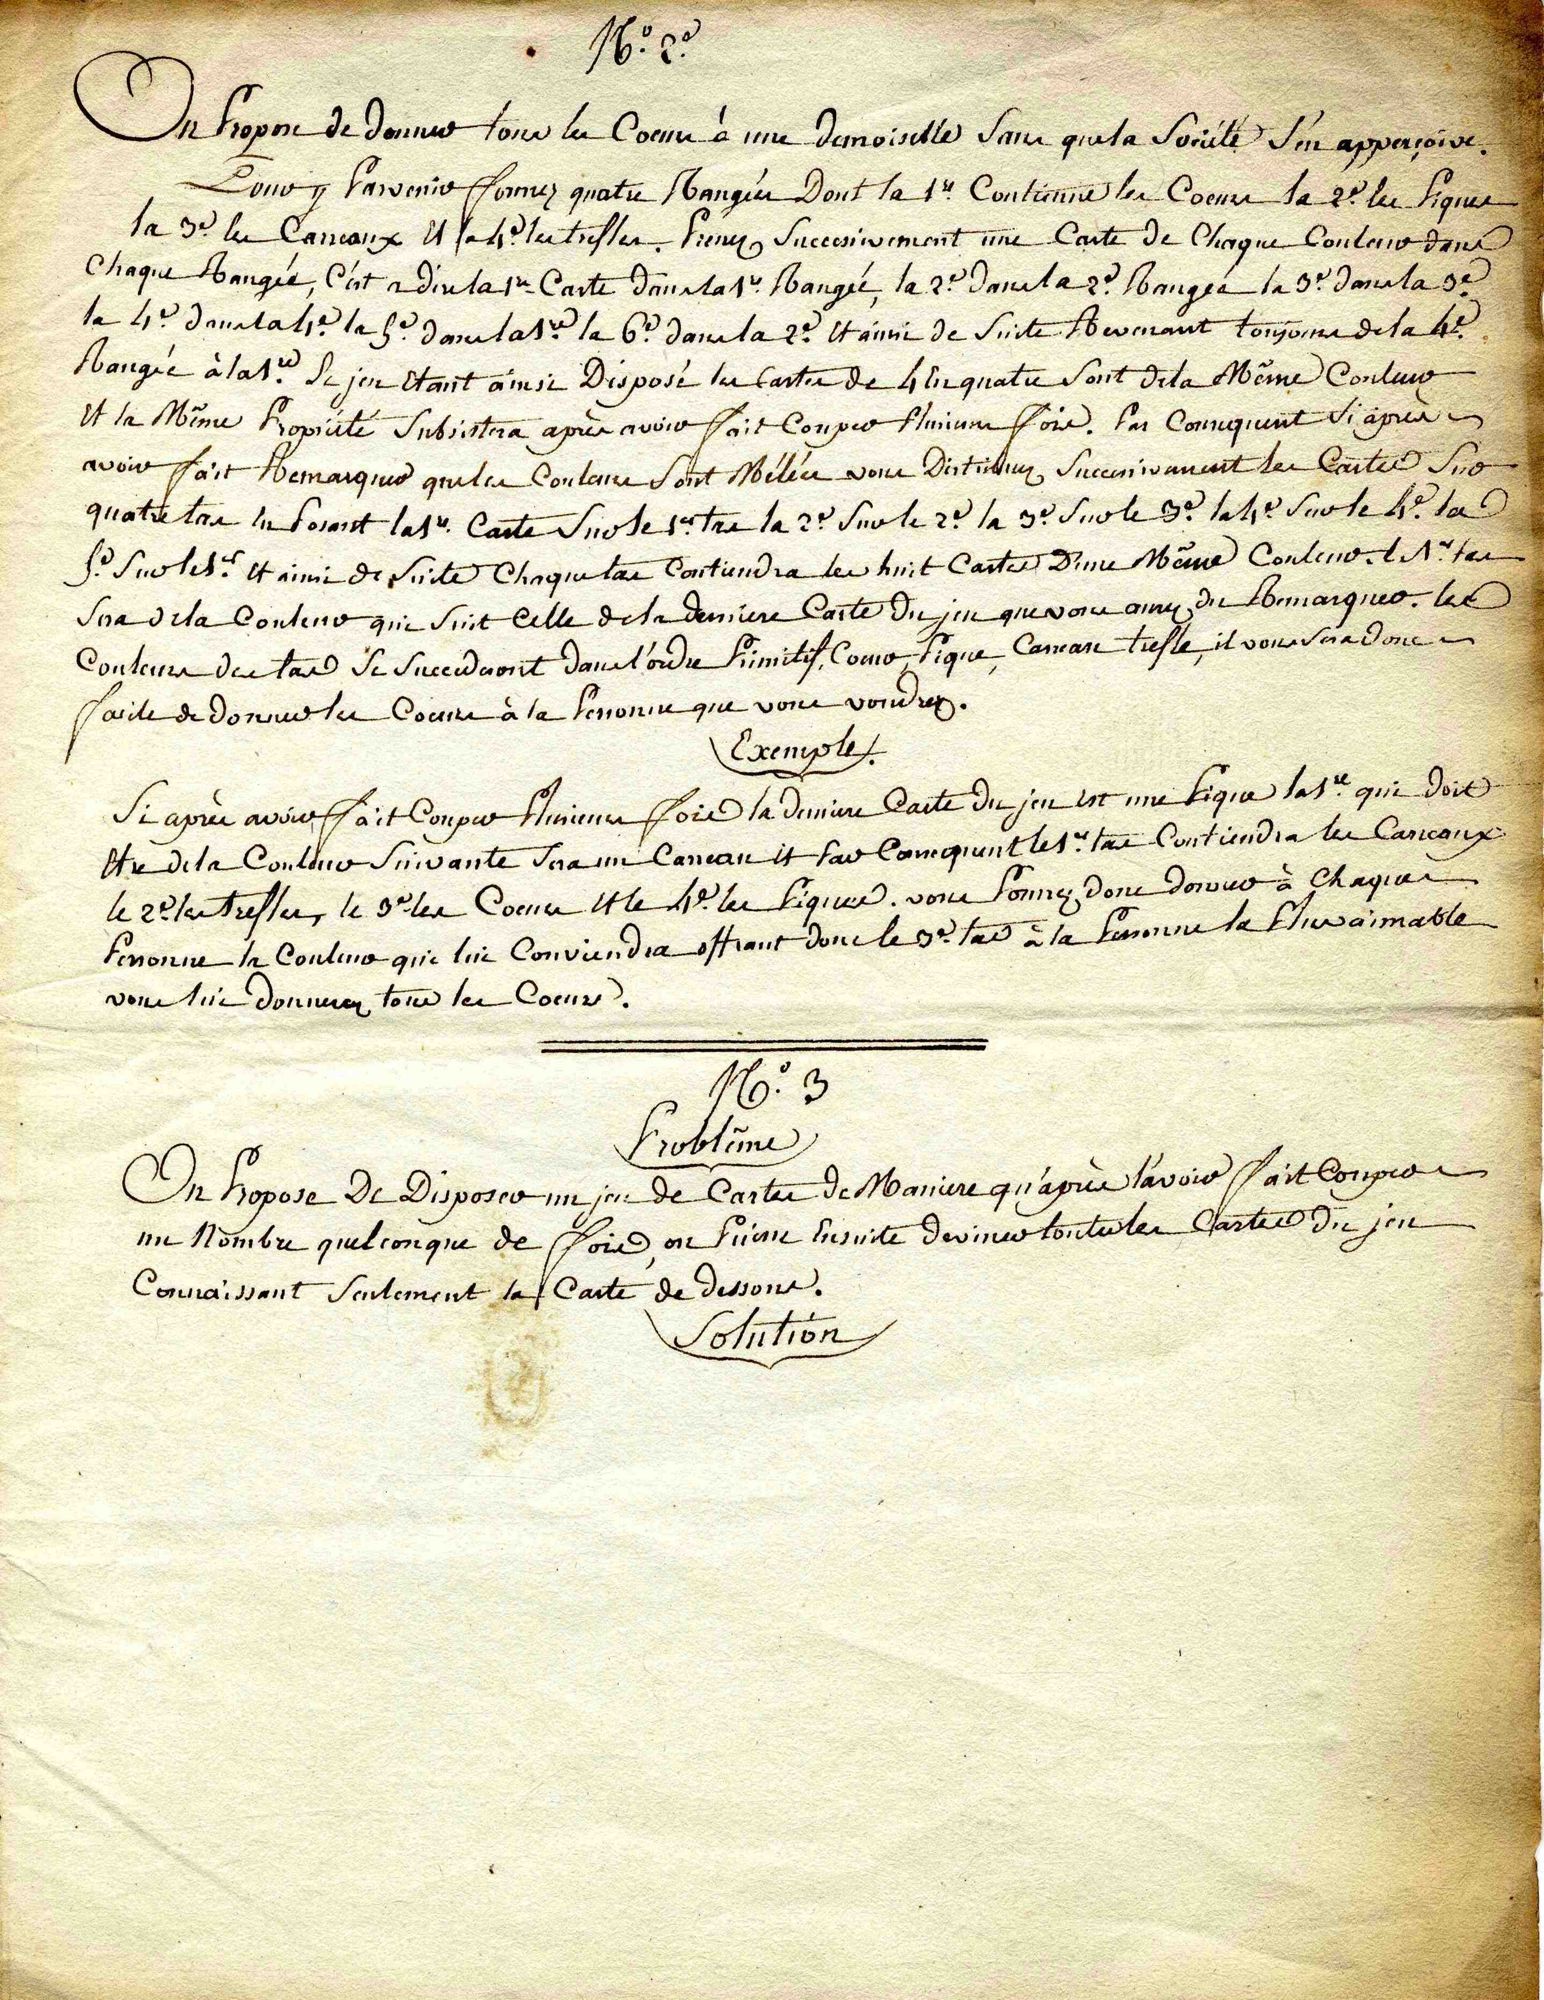 N.º 2.º
On Propose de donner tous les Coeurs à une demoiselle Sans que la Société S'en apperçoive.
Pour y Parvenir formez quatre Rangées Dont la 1re. Contienne les Coeurs la 2e. les Piques
la 3e. les Carreaux Et la 4e. les trefles. Prenez Succesivement une Carte de Chaque Couleur dans
Chaque Rangée, C'est a dire la 1re. Carte dans la 1re. Rangée, la 2e. dans la 2e. Rangée la 3e. dans la 3e.
la 4e. dans la 4e. la 5e. dans la 1re. la 6e. dans la 2e. Et ainsi de Suite Revenant toujours de la 4e.
Rangée à la 1re. Le jeu Etant ainsi Disposé les Cartes de 4 En quatre Sont de la Même Couleur
Et la Même Propriété Subsistera après avoir fait Couper Plusieurs fois. Par Consequent Si après
avoir fait Remarquer que les Couleurs Sont Mélées vous Distribuez Succesivement les Cartes Sur
quatre tas En Posant la 1re. Carte Sur le 1er. tas la 2e. Sur le 2e. la 3e. Sur le 3e. la 4e. Sur le 4e. la
5e. Sur le 1er. Et ainsi de Suite Chaque tas Contiendra les huit Cartes D'une Même Couleur. le 1er. tas
Sera de la Couleur qui Suit Celle de la derniere Carte du jeu que vous aurez du Remarquer. les
Couleurs des tas Se Succederont dans l'ordre Primitif, Coeur, Pique, Carreau trefle, il vous Sera donc
facile de donner les Coeurs à la Personne que vous voudrez.
Exemple.
Si après avoir fait Couper Plusieurs fois la derniere Carte du jeu est une Pique la 1re. qui doit
Etre de la Couleur Suivante Sera un Carreau Et Par Consequent le 1er. tas Contiendra les Carreaux
le 2e. les trefles, le 3e. les Coeurs Et le 4e. les Piques. vous Pourrez donc donner à Chaque
Personne la Couleur qui lui Conviendra offrant donc le 3e. tas à la Personne la Plus aimable
vous lui donnerez tous les Coeurs.
N.º 3
Problême
On Propose De Disposer un jeu de Cartes de Maniere qu'après l'avoir fait Couper
un Nombre quelconque de fois, on Puisse Ensuite deviner toutes les Cartes Du jeu
Connaissant Seulement la Carte de dessous.
Solution